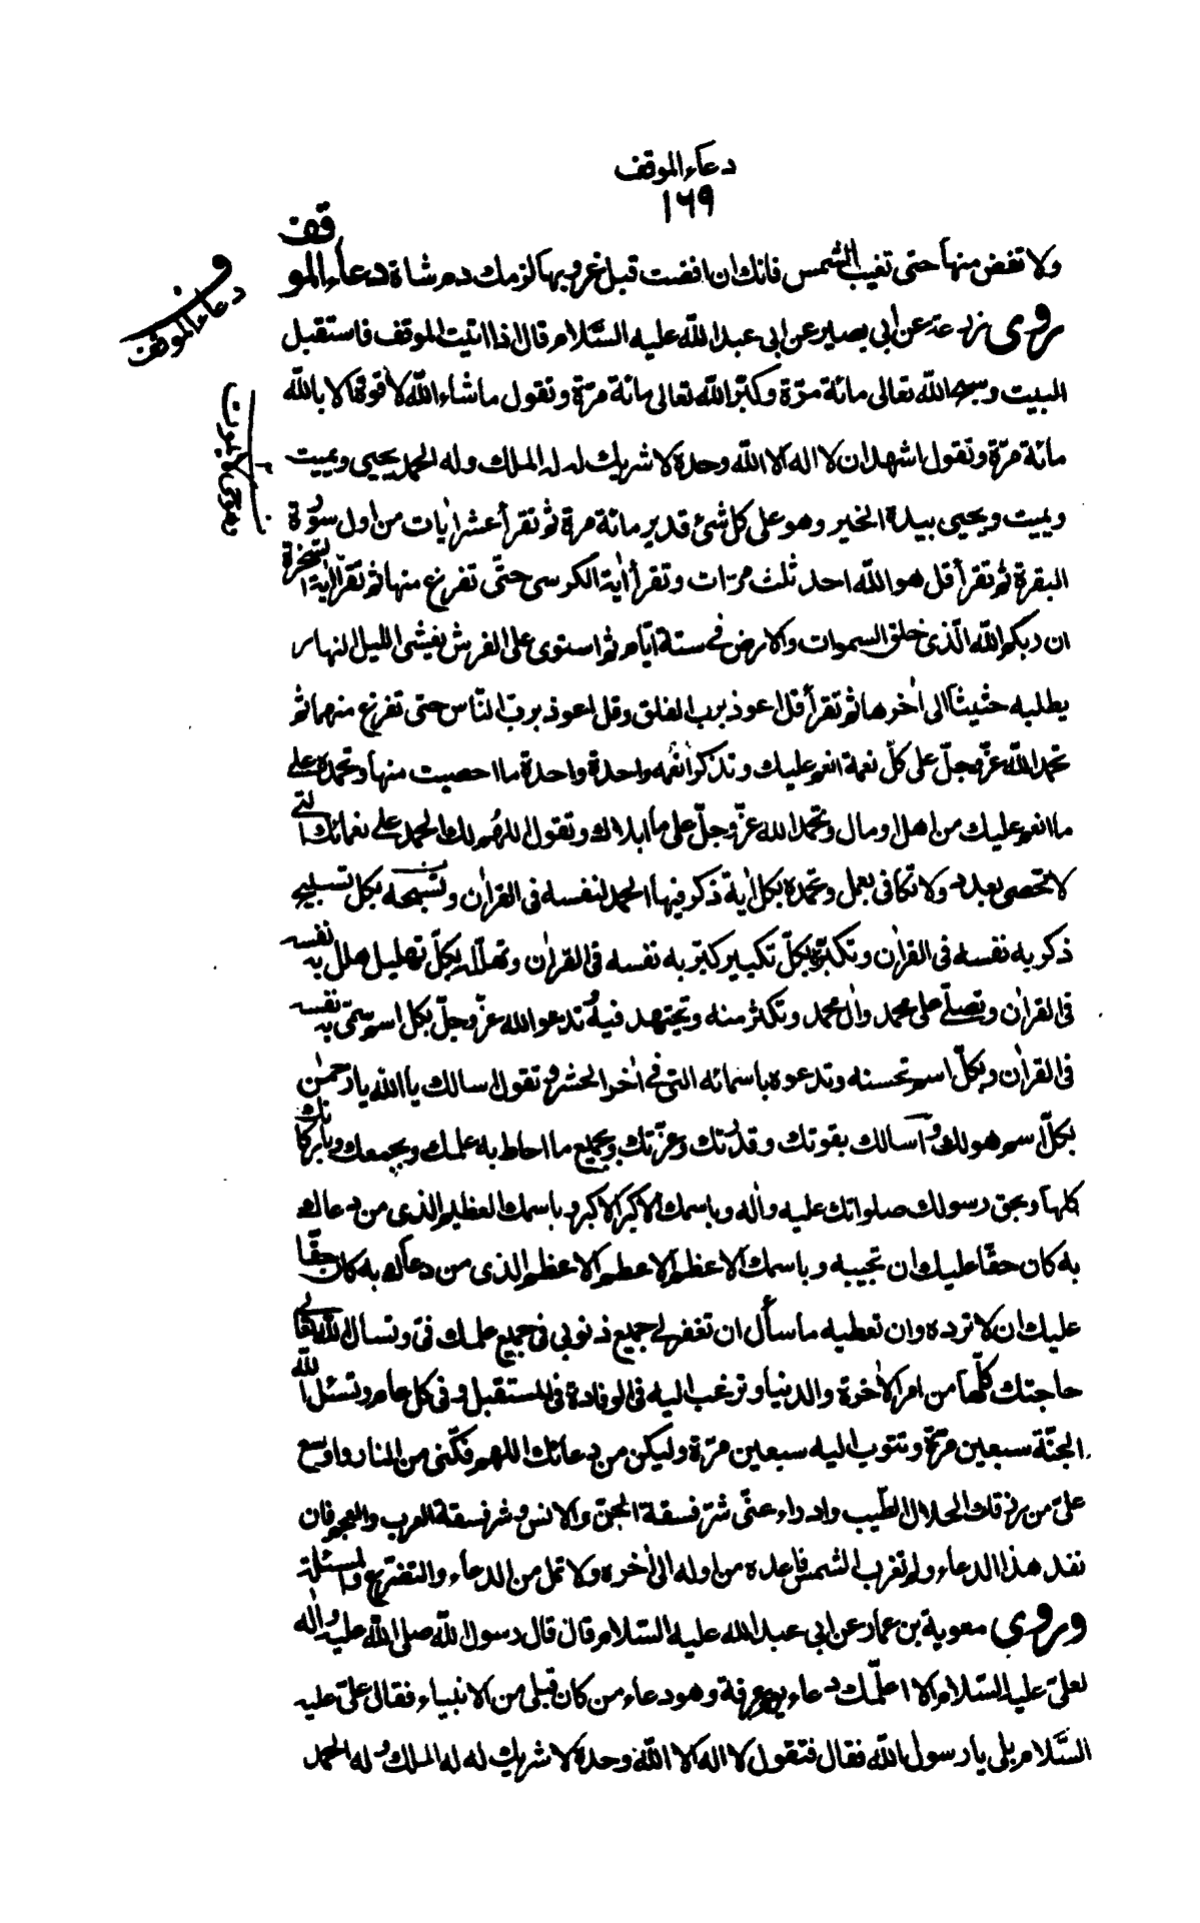 دعاء الموقف
١٦٩
ولا تفض منها حتى تغيب الشمس فانك ان افضت قبل غروبها لزمك دم شاة دعاء الموقف
وف
دعاء الموقف
روى زرعة عن ابى بصير عن ابى عبد الله عليه السّلام قال اذا اتيت الموقف فاستقبل
البيت وسبح الله تعالى مائة مرّة وكبّر الله تعالى مائة مرّة وتقول ما شاء الله لا قوة الا بالله
مائة مرّة وتقول اشهد ان لا اله الا الله وحده لا شريك له له الملك وله الحمد يحيى ويميت
ويميت ويحيى بيده الخير وهو على كل شئ قدير مائة مرة ثم تقرأ عشر اٰيات من اول سورة
البقرة ثم تقرأ قل هو الله احد ثلث مرّات وتقرأ اٰية الكرسى حتّى تفرغ منها ثم تقرأ اٰية السخرة
ان ربكم الله الّذى خلق السموات والارض فى ستة ايّام ثم استوى على العرش يغشى الليل النهار
يطلبه حثيثاً الى اٰخرها ثم تقرأ قل اعوذ برب الفلق وقل اعوذ بربّ النّاس حتى تفرغ منهما ثم
تحمد الله عزّ وجلّ على كلّ نعمة انعم عليك وتذكر انعمه واحدة واحدة ما احصيت منها وتحمده على
ما انعم عليك من اهل او مال وتحمد الله عزّ وجلّ على ما ابلاك وتقول اللهم لك الحمد على نعمائك التى
لا تحصى بعدد ولا تكافى بعمل وتحمده بكل اٰية ذكر فيها الحمد لنفسه فى القراٰن وتسبّحه بكل تسبيح
ذكر به نفسه فى القراٰن وتكبّره بكلّ تكبير كبّر به نفسه فى القراٰن وتهلّله بكلّ تهليل هلل به نفسه
فى القراٰن وتصلّى على محمد واٰل محمد وتكثر منه وتجتهد فيه وتدعو الله عزّ وجلّ بكل اسم سمّى به نفسه
فى القراٰن وبكلّ اسم تحسنه وتدعوه باسمائه التى فى اٰخر الحشر وتقول اسالك يا الله يا رحمٰن
بكلّ اسم هو لك واسالك بقوتك وقدرتك وعزّتك وبجميع ما احاط به علمك وبجمعك وباركانك
كلها وبحق رسولك صلواتك عليه واٰله وباسمك الاكبر الاكبر وباسمك العظيم الذى من دعاك
به كان حقّا عليك ان تجيبه وباسمك الاعظم الاعظم الاعظم الذى من دعاك به كان حقّا
عليك ان لا ترده وان تعطيه ما سأل ان تغفر لى جميع ذنوبى فى جميع علمك فىّ وتسال الله تعالى
حاجتك كلّها من امر الاٰخرة والدنيا وترغب اليه فى الوفادة فى المستقبل وفى كل عام وتسئل الله
الجنّة سبعين مرّة وتتوب اليه سبعين مرّة وليكن من دعائك اللهم فكّنى من النار واوسع
علىّ من رزقك الحلال الطّيب وادراء عنّى شرّ فسقة الجنّ والانس وشر فسقة العرب والعجم فان
نفد هذا الدعاء ولم تغرب الشمس فاعده من اوله الى اٰخره ولا تمل من الدعاء والتضرّع والمسئلة
وروى معوية بن عمار عن ابى عبد الله عليه السّلام قال قال رسول الله صلى الله عليه واٰله
لعلىّ عليه السّلام الا اعلّمك دعاء يوم عرفة وهو دعاء من كان قبلى من الانبياء فقال علىّ عليه
السّلام بلى يا رسول الله فقال فتقول لا اله الا الله وحده لا شريك له له الملك وله الحمد